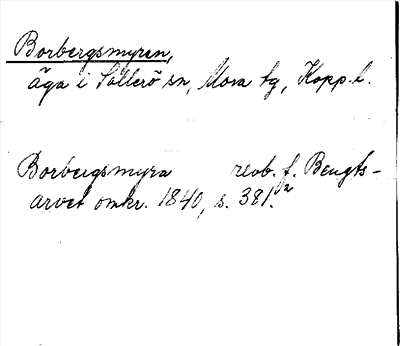 Borbergsmyren,
äga i Sollerö sn, Mora tg, Kopp. l.
Borbergsmyra revb. f. Bengts-
arvet omkr. 1840, s. 381.